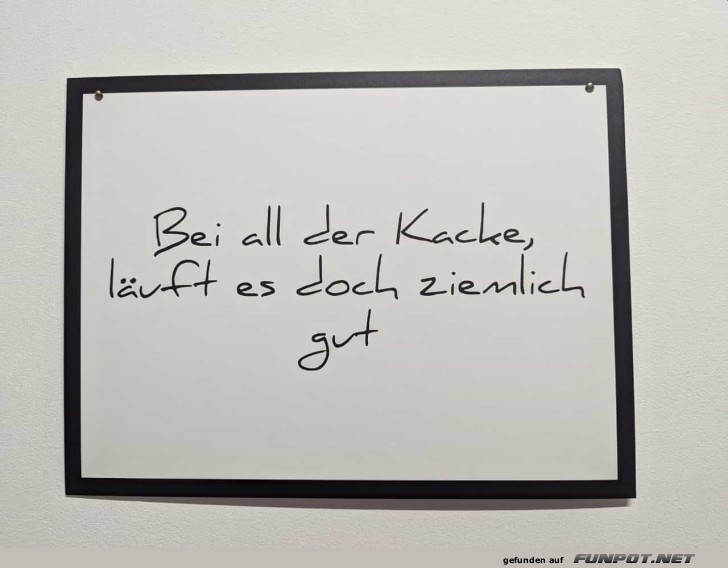 Bei all der Kacke,
läuft es doch ziemlich
gut
gefunden auf FUNPOT.NET